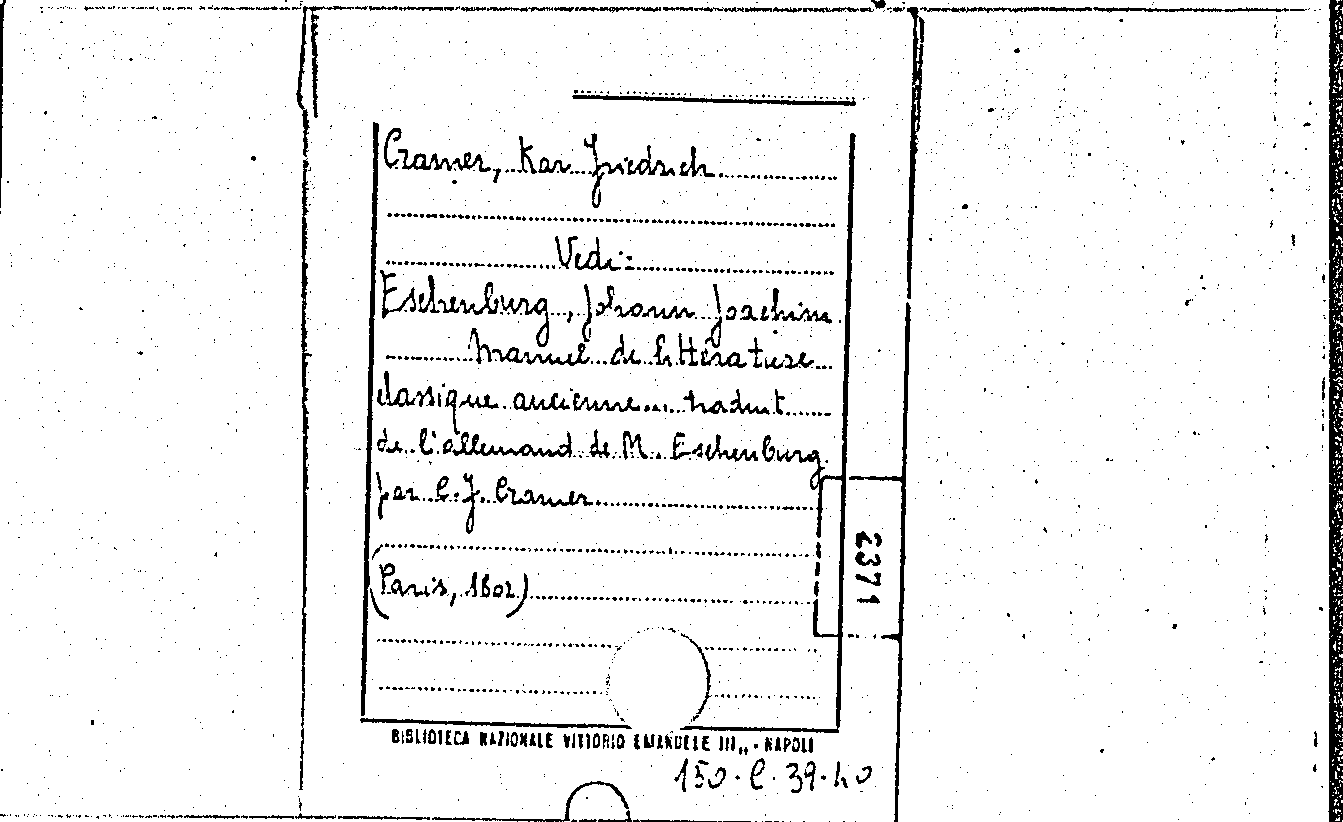 Cramer, Kar Friedrich
Vedi:
Eschenburg, Johann Joachim
Manuel de littérature
classique ancienne... traduit
de l'allemand de M. Eschenburg
par C. F. Cramer
(Paris, 1802)
2371
BIBLIOTECA NAZIONALE VITTORIO EMANUELE III,, - NAPOLI
150. C. 39-40